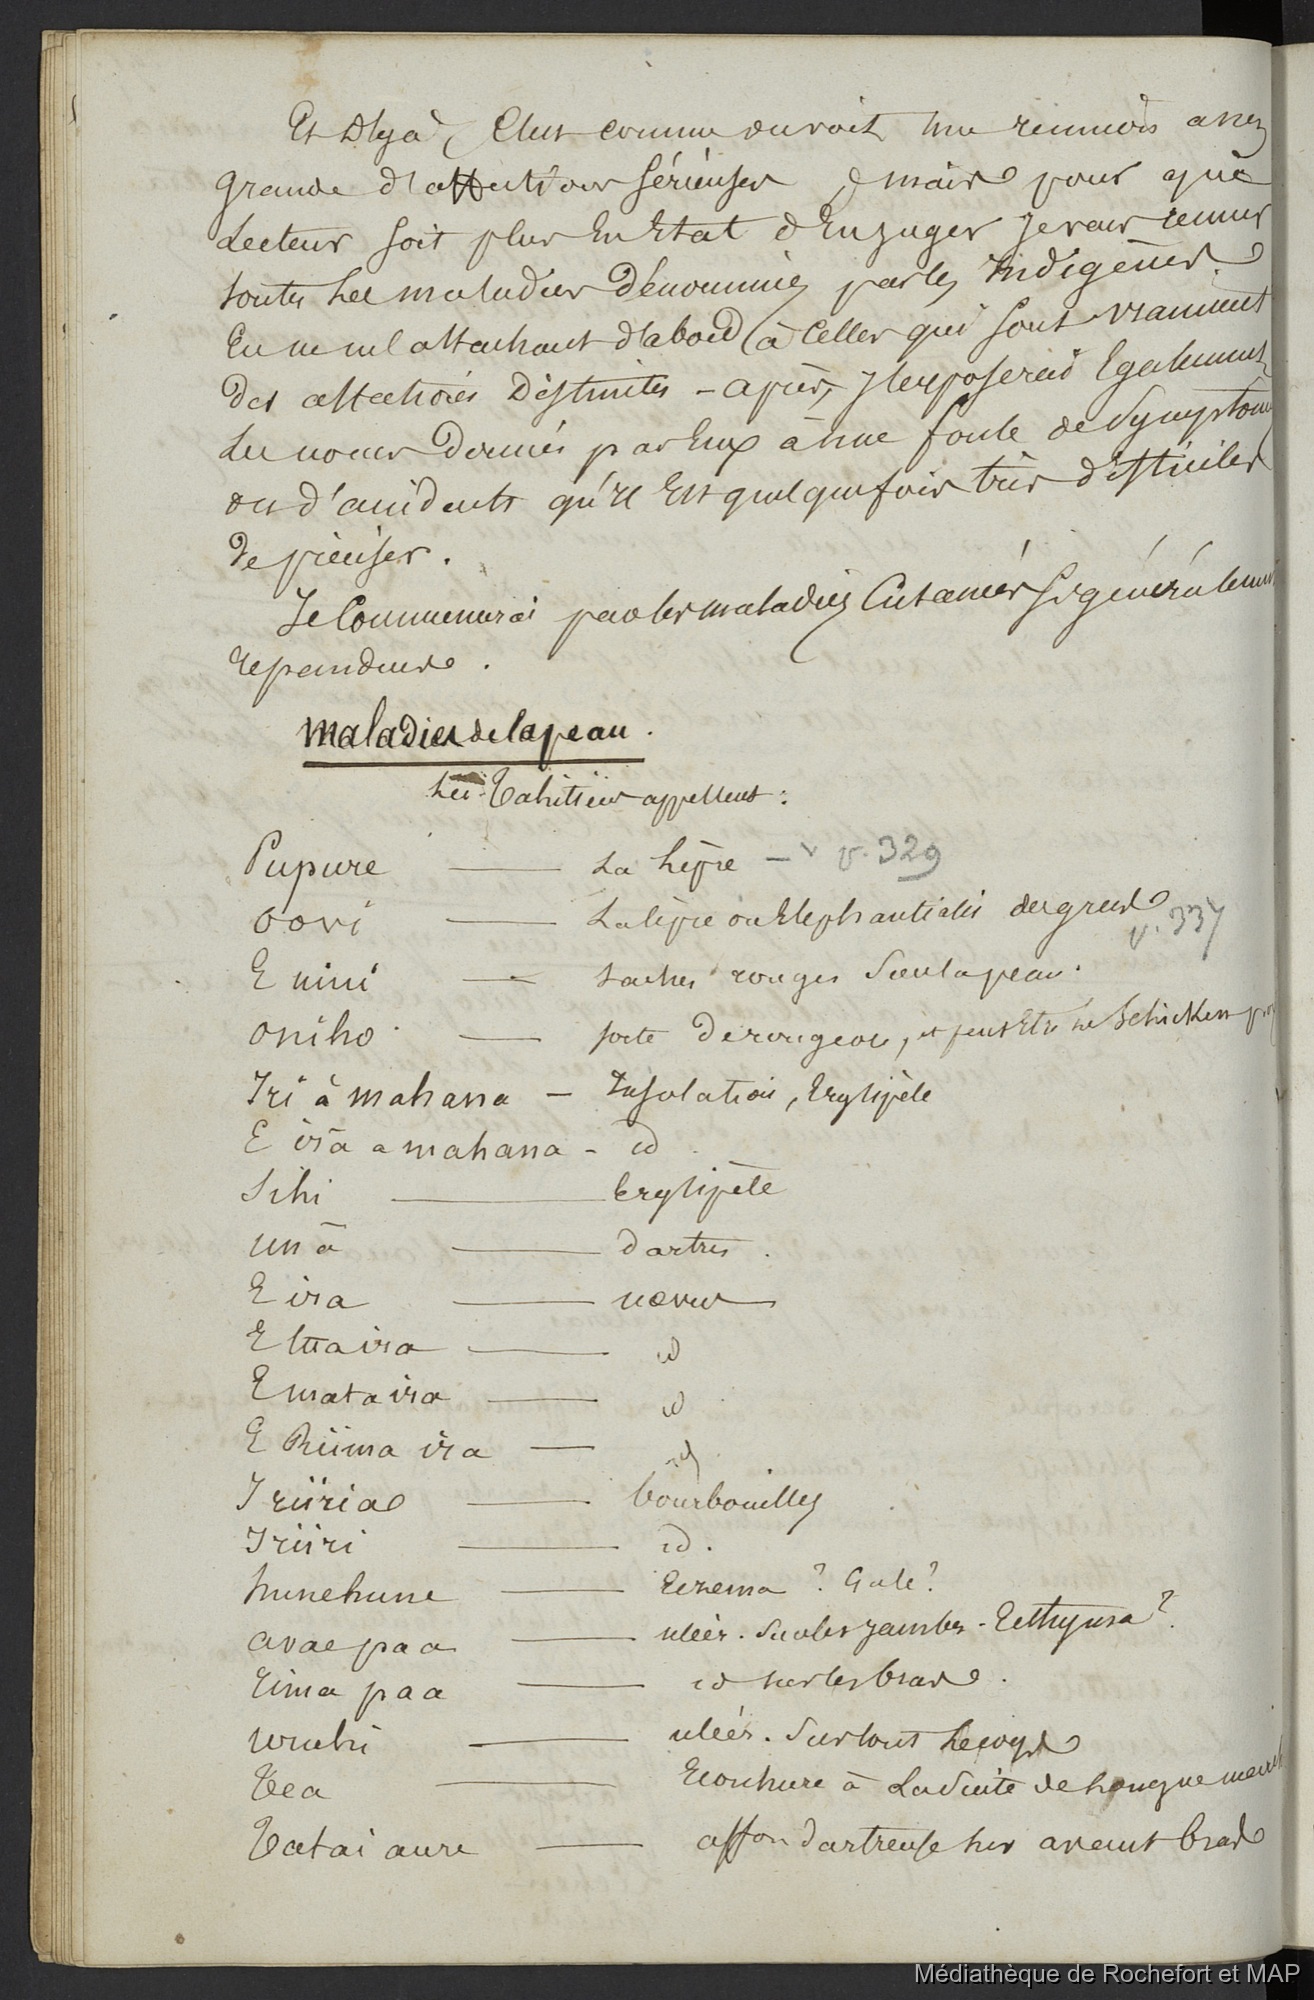 Et deja, c'est comme on voit une reunion assez
grande d'affections sérieuses, mais pour que le
Lecteur soit plus en Etat d'en juger Je vais
toutes les maladies dénommées par les Indigènes.
En m'attachant d'abord à celles qui sont vraiment
des affections Distinctes - après, J'exposerai Egalement
Les noms donnés par eux à une foule de Symptomes
ou d'accidents qu'il est quelquefois très difficiles
de préciser.
Je Commencerai par les maladies Cutanées si généralement
repandues.
Maladies de la peau.
Les Tahitiens appellent :
Pupure — La Lèpre — v. 329
oovi — La lèpre ou Elephantiasis des grecs v. 337
E nini — taches rouges sur la peau.
oniho — sorte de rougeole, et peut Etre le Schicken
Iri à mahana — Insolation, Erysipèle
E ira a mahana - id.
Sihi — Erysipèle
unā — dartres.
E ira — nævus
E tua ira — id
E mata ira — id
E Riima ira — id
Iriiria — bourbouilles
Iriiri — id.
hunehune — Eczema ? Gale ?
avae paa — ulcér. sur les jambes - Ecthyma ?
Rima paa — id sur les bras.
 — ulcér. surtout le corps
Tea — Ecorchure à La Suite de longue marche
Tatai aure — affon dartreuse sur avant bras